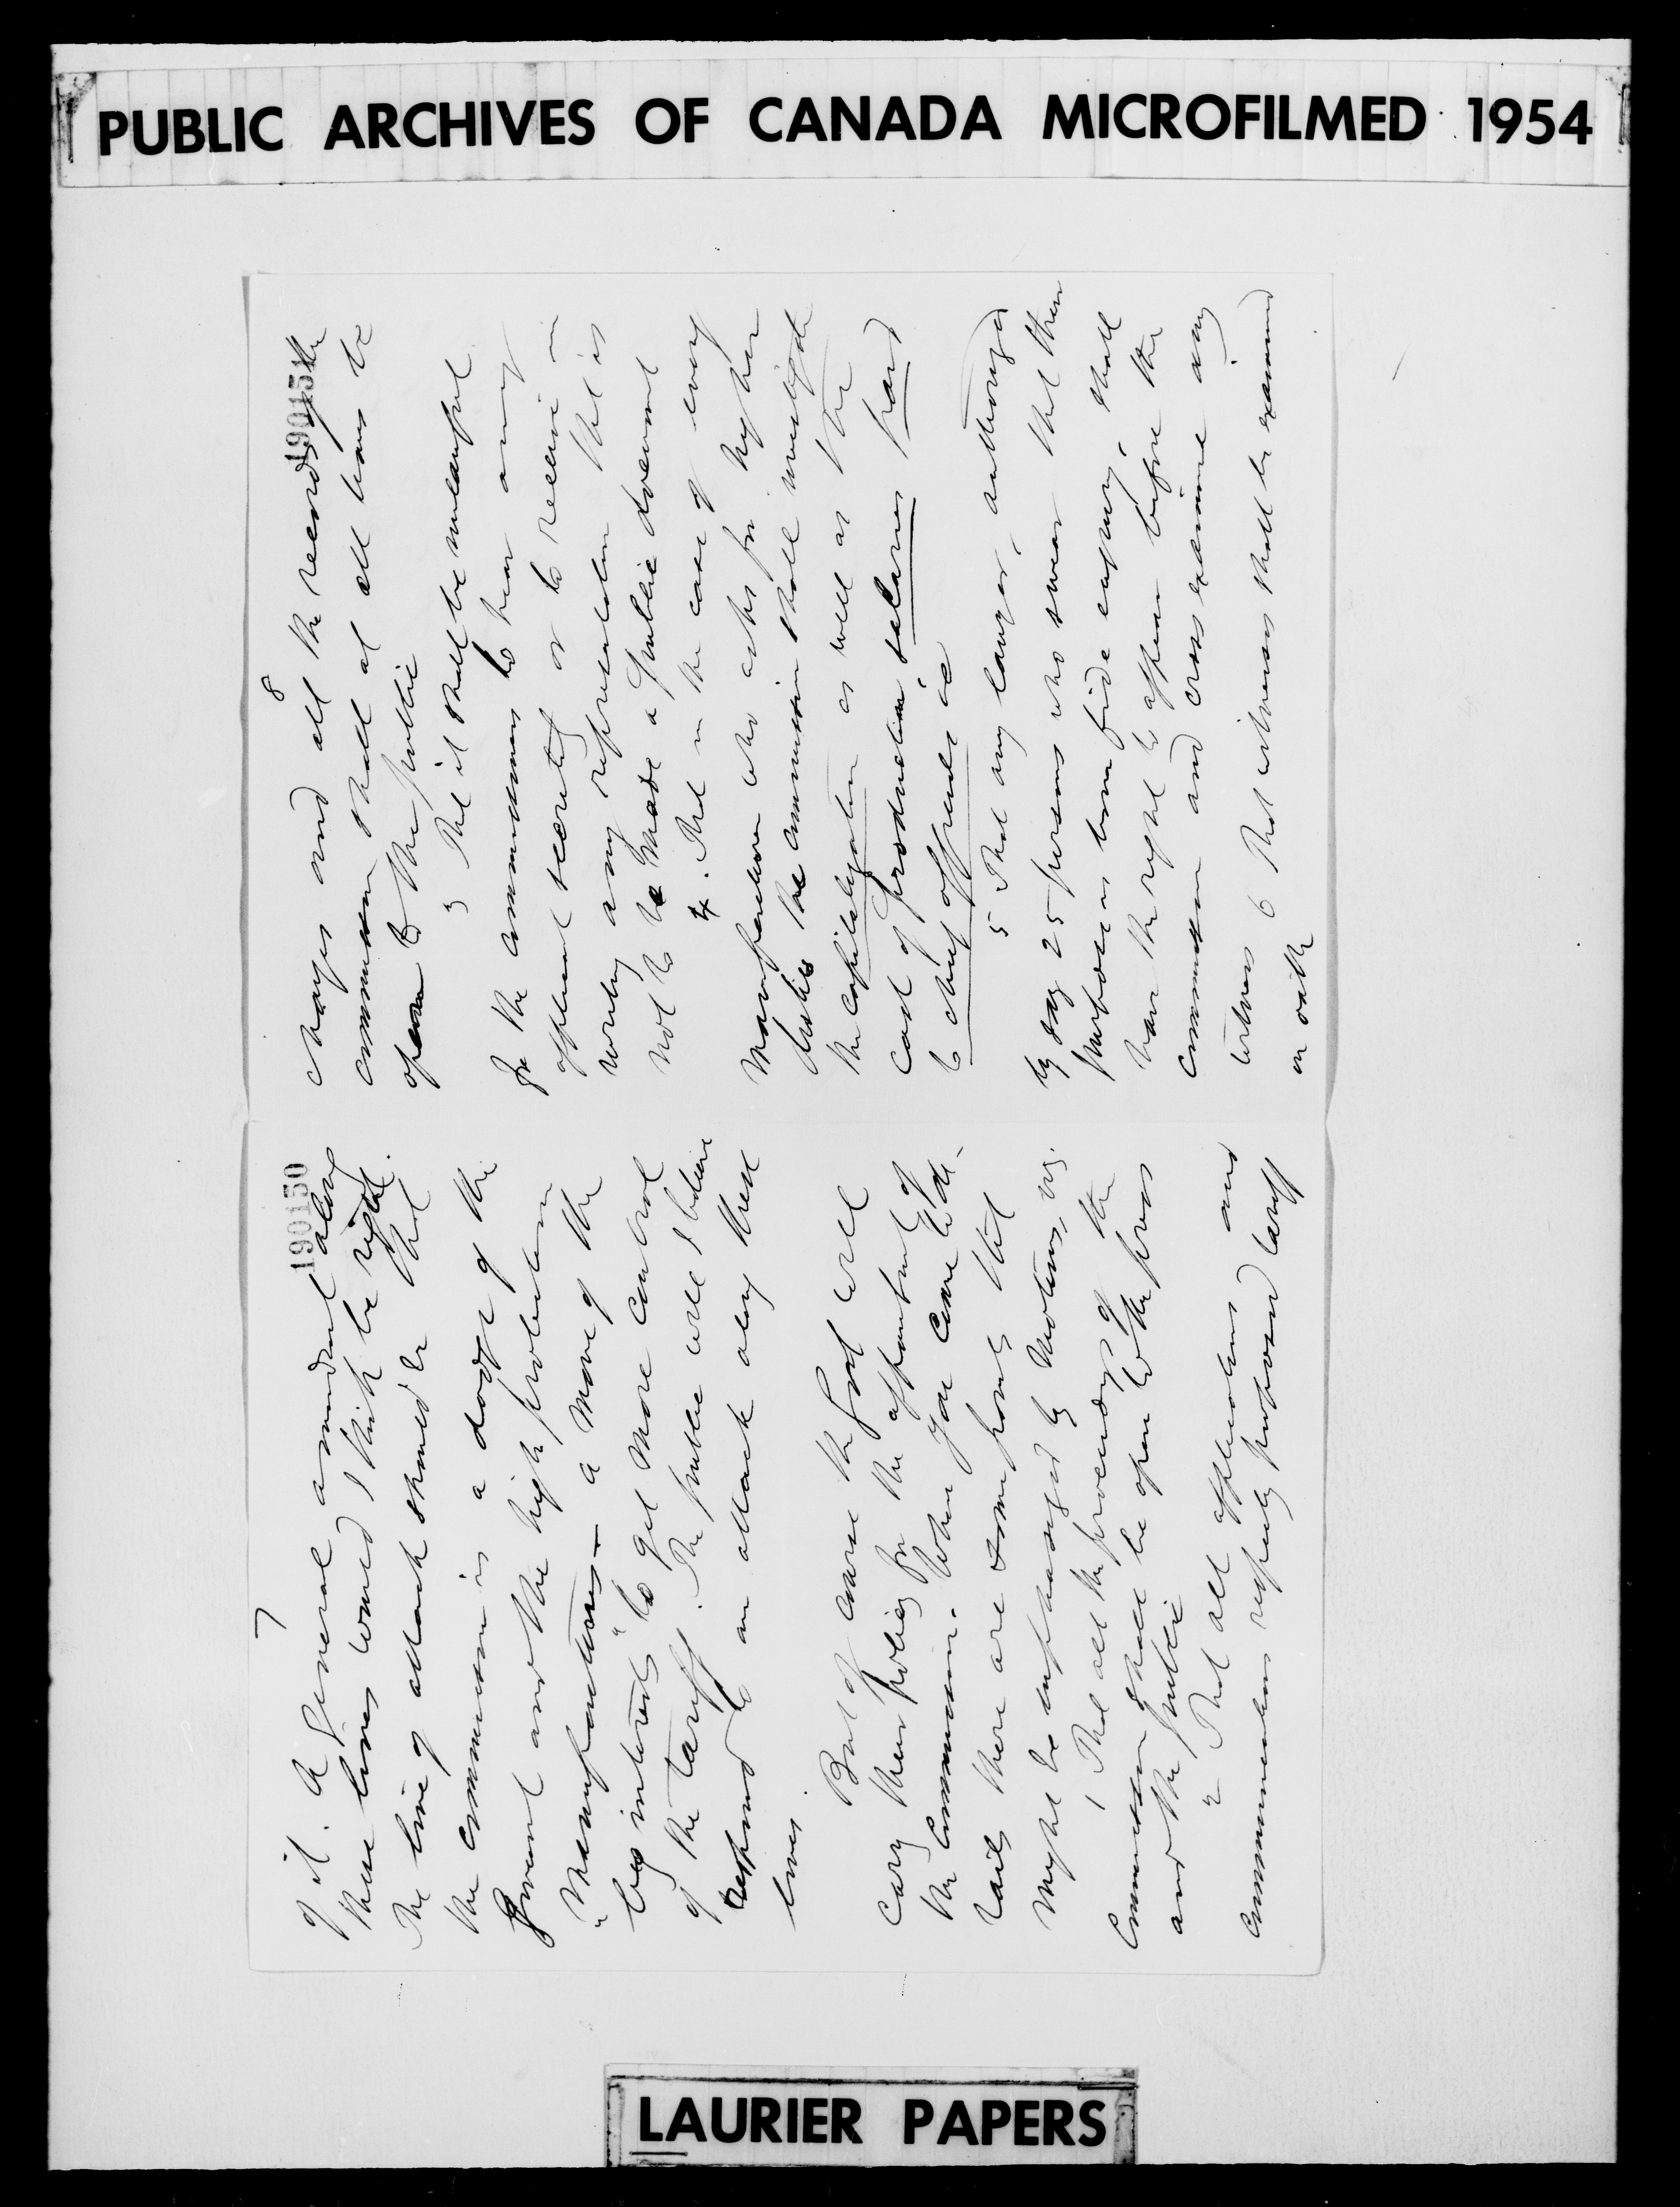 PUBLIC ARCHIVES OF CANADA MICROFILMED 1954
7
190150
of it. A general amendment along
these lines would I think be right.
The line of attack should be that
the commission is a dodge of the
Government and the high protection
"manufacturers — a move of the
big interests" to get more control
of the tariff. The public will I believe
respond to an attack along these
lines.
But of course the Govt will
cary their policy for the appointment of
the Commission. When you come to de-
tails there are some points that
might be emphasized by motions, viz.
1 That all the proceedings of the
Commission shall be open to the press
and the public
2 That all applications and
communications respecting proposed tariff
8
190151
changes and all the records of the
commission shall at all times be
open to the public
3 That it shall be unlawful
for the commissioners to hear any
applicant secretly or to receive in
writing any representation that is
not to be made a public document
4. That in the case of every
manufacturer who asks for higher
duties the commission shall investigate
the capitalization as well as the
cost of production, salaries paid
to chief officials &c
5 That any lawyer, authorized
by say 25 persons who swear that their
purpose is bona fide enquiry, shall
have the right to appear before the
Commission and cross examine any
witness
6 That witnesses shall be examined
on oath
LAURIER PAPERS